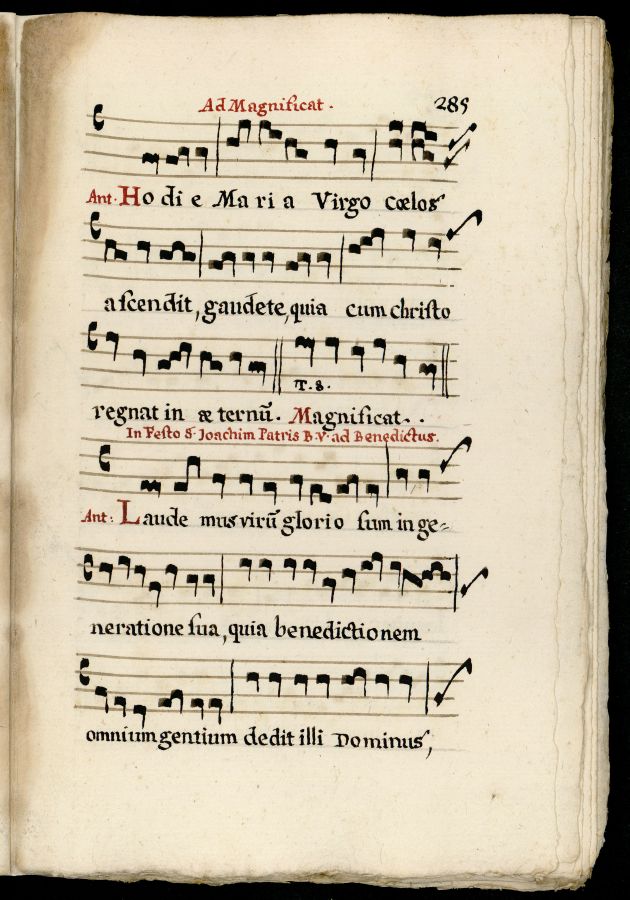 Ad Magnificat. 285
Ant. Ho di e Ma ri a Virgo cœlos
a scendit, gaudete, quia cum christo
T. 8.
regnat in æ ternũ. Magnificat.
In Festo S. Joachim Patris B. V. ad Benedictus.
Ant: Laude mus virũ glorio sum in ge=
neratione sua, quia benedictionem
omnium gentium dedit illi Dominus,